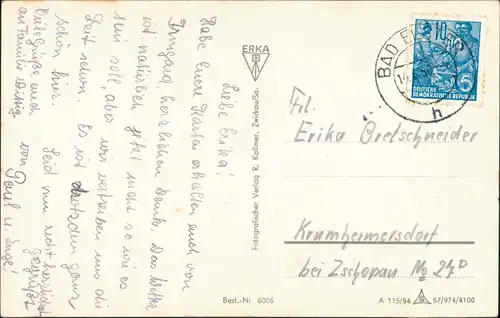 Liebe Erika!
Habe Eure Karten erhalten auch von
Irmgard herzlichen Dank. Das Wetter
ist natürlich jetzt nicht so wie es
sein soll, aber wir vertreiben uns die
Zeit schon. Es ist trotzdem ganz
schön hier.
Seid nun recht herzlich
gegrüßt
von
u. Inge!
Viele Grüße auch
an Familie
ERKA
Fotografischer Verlag R. Kallmer, Zwickau/Sa.
Best.-Nr. 6006
BAD
10
h
DEUTSCHE
DEMOKRATISCHE REPUBLIK
Frl.
Erika Bretschneider
Krumhermersdorf
bei Zschopau No 27D
A 115/54 57/974/4100